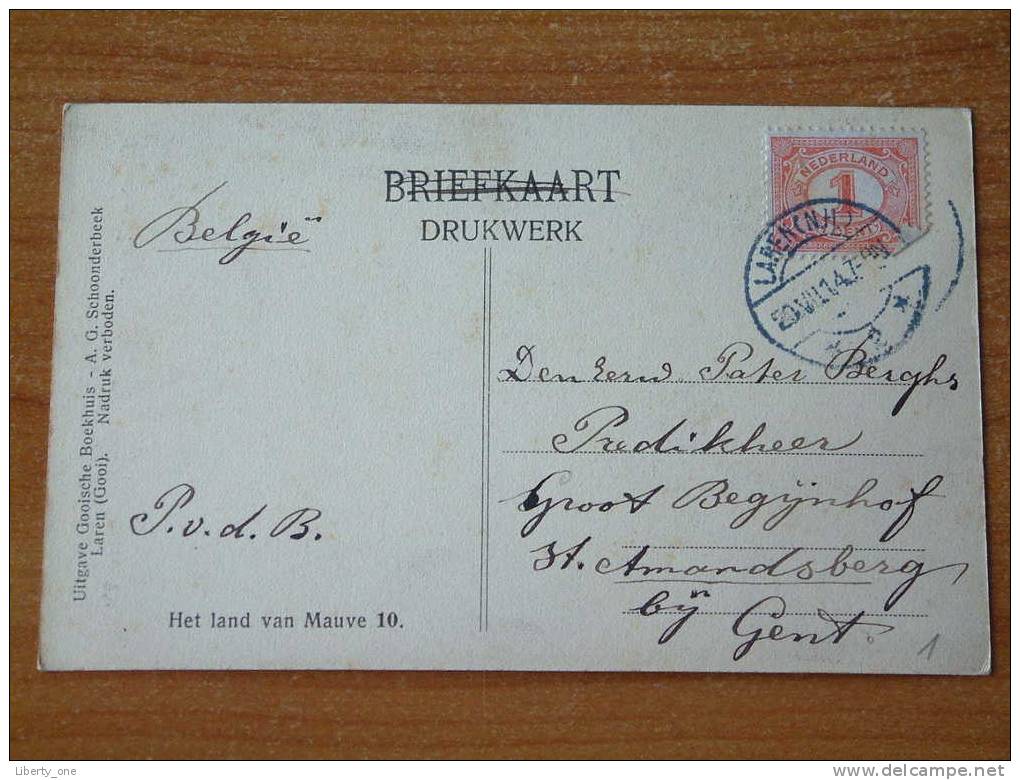 Uitgave Gooische Boekhuis - A. G. Schoonderbeek
Laren (Gooi). Nadruk verboden.
BRIEFKAART
DRUKWERK
België
NEDERLAND
1
CENT
LAREN (N.H.)
20.VII.14.7-
Den Eerw. Pater Berghs
Predikheer
Groot Begijnhof
St. Amandsberg
bij Gent.
P.v.d.B.
Het land van Mauve 10.
1
Liberty_one
http://www.delcampe.net